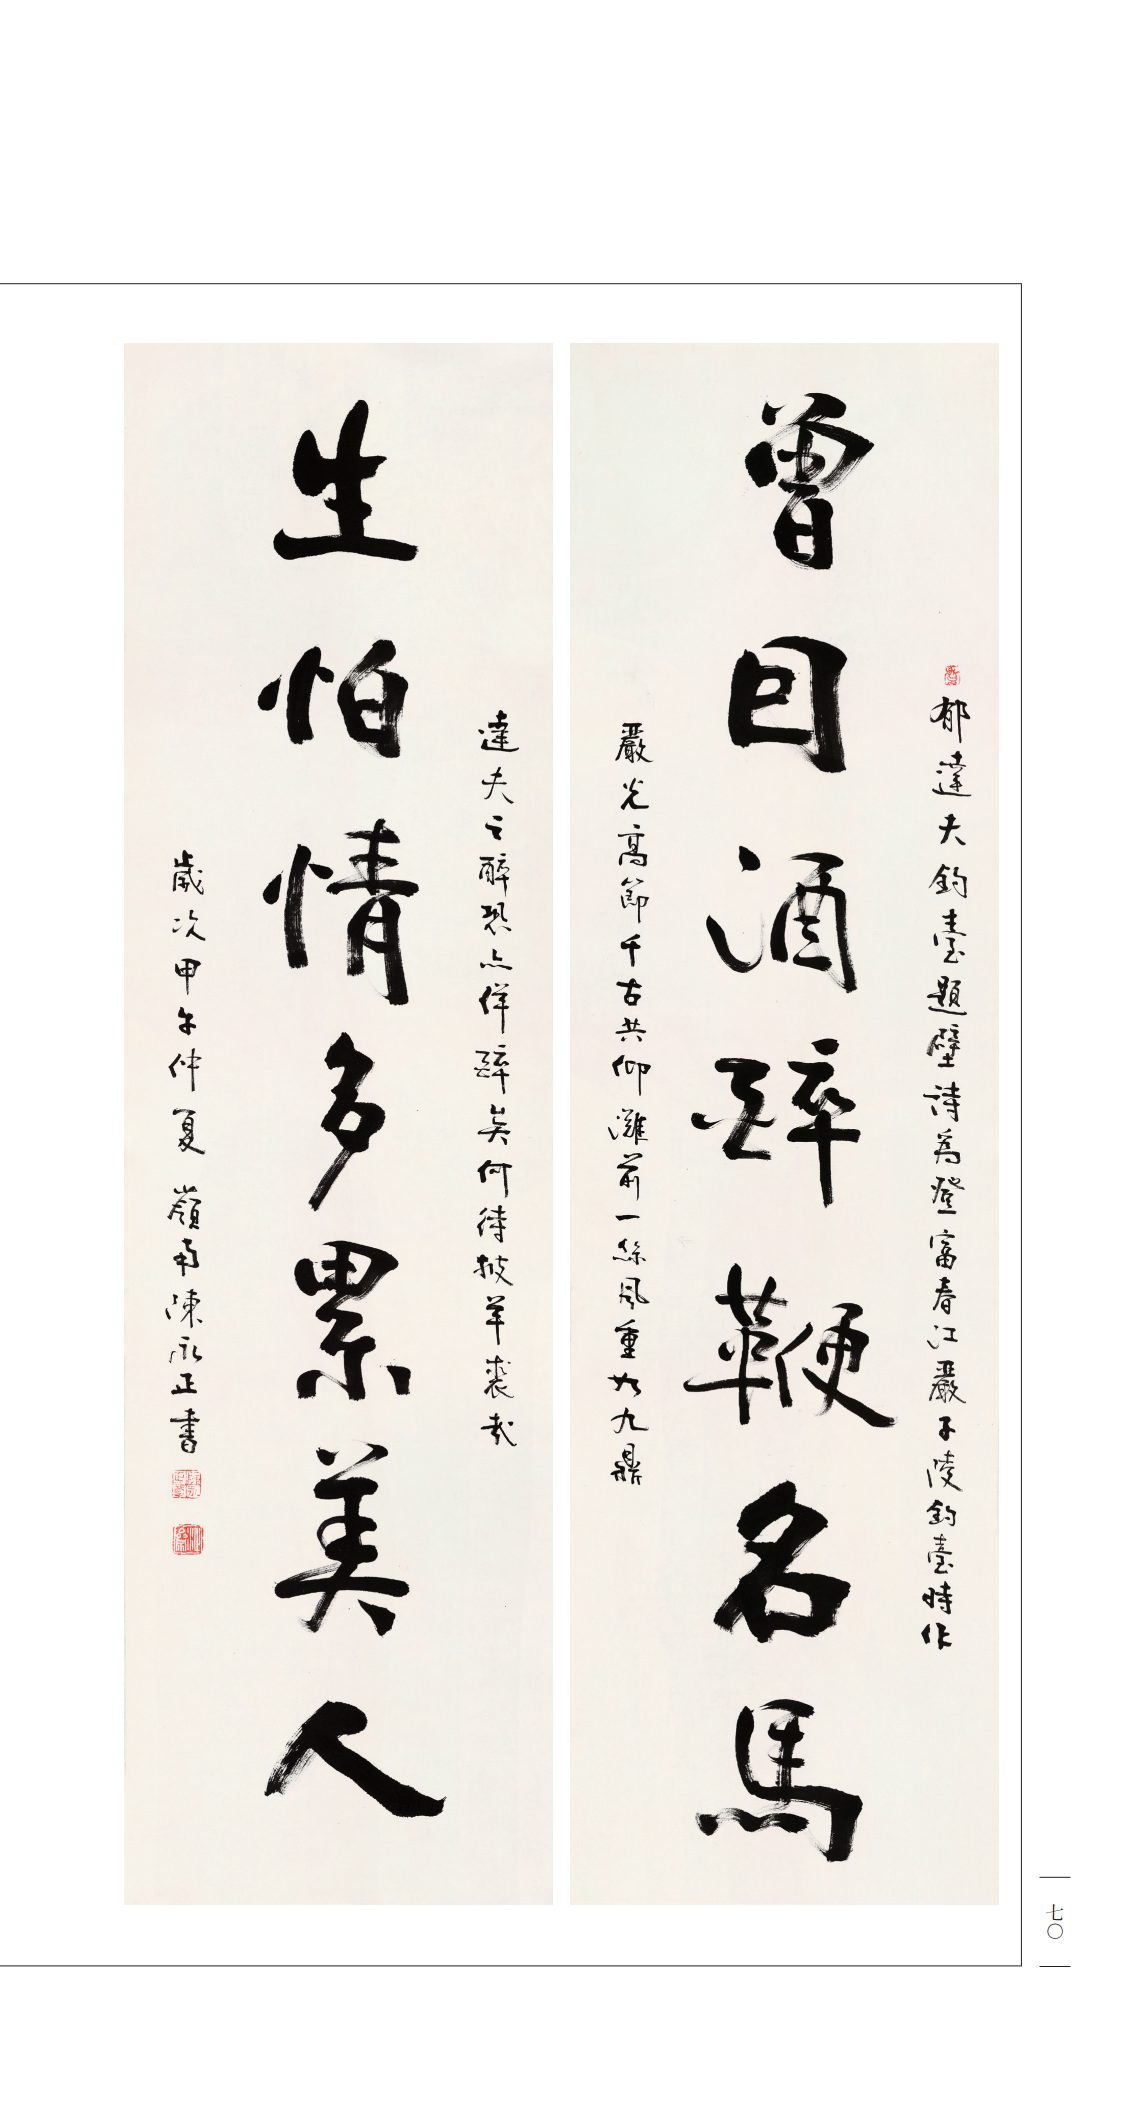 郁達夫釣臺題壁詩為登富春江嚴子陵釣臺時作
曾因酒醉鞭名馬
嚴光高節千古共仰灘前一絲風重如九鼎
達夫之醉恐亦佯醉矣何待披羊裘哉
生怕情多累美人
歲次甲午仲夏 嶺南陳永正書
七〇